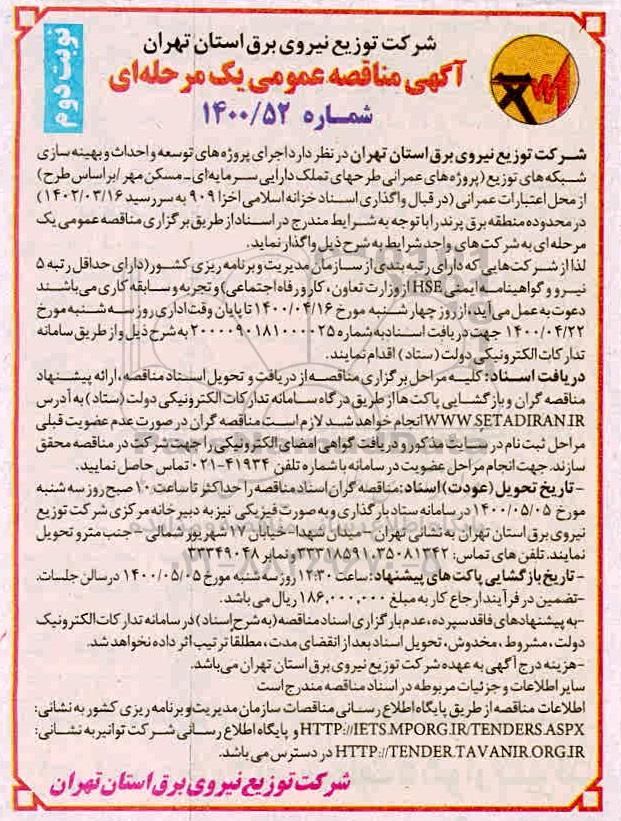 نوبت دوم
شرکت توزیع نیروی برق استان تهران
آگهی مناقصه عمومی یک مرحله‌ای
شماره ۱۴۰۰/۵۲
شرکت توزیع نیروی برق استان تهران در نظر دارد اجرای پروژه های توسعه و احداث و بهینه سازی
شبکه های توزیع (پروژه های عمرانی طرحهای تملک دارایی سرمایه‌ای - مسکن مهر /براساس طرح)
از محل اعتبارات عمرانی (در قبال واگذاری اسناد خزانه اسلامی اخزا ۹۰۹ به سررسید ۱۴۰۲/۰۳/۱۶)
در محدوده منطقه برق پرند را با توجه به شرایط مندرج در اسناد از طریق برگزاری مناقصه عمومی یک
مرحله ای به شرکت های واجد شرایط به شرح ذیل واگذار نماید.
لذا از شرکت‌هایی که دارای رتبه بندی از سازمان مدیریت و برنامه ریزی کشور (دارای حداقل رتبه ۵
نیرو و گواهینامه ایمنی HSE از وزارت تعاون، کار و رفاه اجتماعی) و تجربه و سابقه کاری می باشند
دعوت به عمل می آید، از روز چهارشنبه مورخ ۱۴۰۰/۰۴/۱۶ تا پایان وقت اداری روز سه شنبه مورخ
۱۴۰۰/۰۴/۲۲ جهت دریافت اسناد به شماره ۲۰۰۰۰۹۰۱۸۱۰۰۰۰۲۵ به شرح ذیل و از طریق سامانه
تدارکات الکترونیکی دولت (ستاد) اقدام نمایند.
دریافت اسناد: کلیه مراحل برگزاری مناقصه از دریافت و تحویل اسناد مناقصه، ارائه پیشنهاد
مناقصه گران و بازگشایی پاکت ها از طریق درگاه سامانه تدارکات الکترونیکی دولت (ستاد) به آدرس
WWW.SETADIRAN.IR انجام خواهد شد. لازم است مناقصه گران در صورت عدم عضویت قبلی
مراحل ثبت نام در سایت مذکور و دریافت گواهی امضای الکترونیکی را جهت شرکت در مناقصه محقق
سازند. جهت انجام مراحل عضویت در سامانه با شماره تلفن ۴۱۹۳۴-۰۲۱ تماس حاصل نمایید.
- تاریخ تحویل (عودت) اسناد: مناقصه گران اسناد مناقصه را حداکثر تا ساعت ۱۰ صبح روز سه شنبه
مورخ ۱۴۰۰/۰۵/۰۵ در سامانه ستاد بارگذاری و به صورت فیزیکی نیز به دبیرخانه مرکزی شرکت توزیع
نیروی برق استان تهران به نشانی تهران - میدان شهدا - خیابان ۱۷ شهریور شمالی - جنب مترو تحویل
نمایند. تلفن های تماس: ۳۳۳۱۸۵۹۱،۳۵۰۸۱۳۴۲ و نمابر ۳۳۳۴۹۰۴۸
- تاریخ بازگشایی پاکت های پیشنهاد: ساعت ۱۲:۳۰ روز سه شنبه مورخ ۱۴۰۰/۰۵/۰۵ در سالن جلسات.
-تضمین در فرآیند ارجاع کار به مبلغ ۱۸۶,۰۰۰,۰۰۰ ریال می باشد.
-به پیشنهادهای فاقد سپرده، عدم بارگزاری اسناد مناقصه (به شرح اسناد) در سامانه تدارکات الکترونیک
دولت، مشروط، مخدوش، تحویل اسناد بعد از انقضای مدت، مطلقا ترتیب اثر داده نخواهد شد.
-هزینه درج آگهی به عهده شرکت توزیع نیروی برق استان تهران می‌باشد.
سایر اطلاعات و جزئیات مربوطه در اسناد مناقصه مندرج است
اطلاعات مناقصه از طریق پایگاه اطلاع رسانی مناقصات سازمان مدیریت و برنامه ریزی کشور به نشانی:
HTTP://IETS.MPORG.IR/TENDERS.ASPX و پایگاه اطلاع رسانی شرکت توانیر به نشانی:
HTTP://TENDER.TAVANIR.ORG.IR در دسترس می باشد.
شرکت توزیع نیروی برق استان تهران